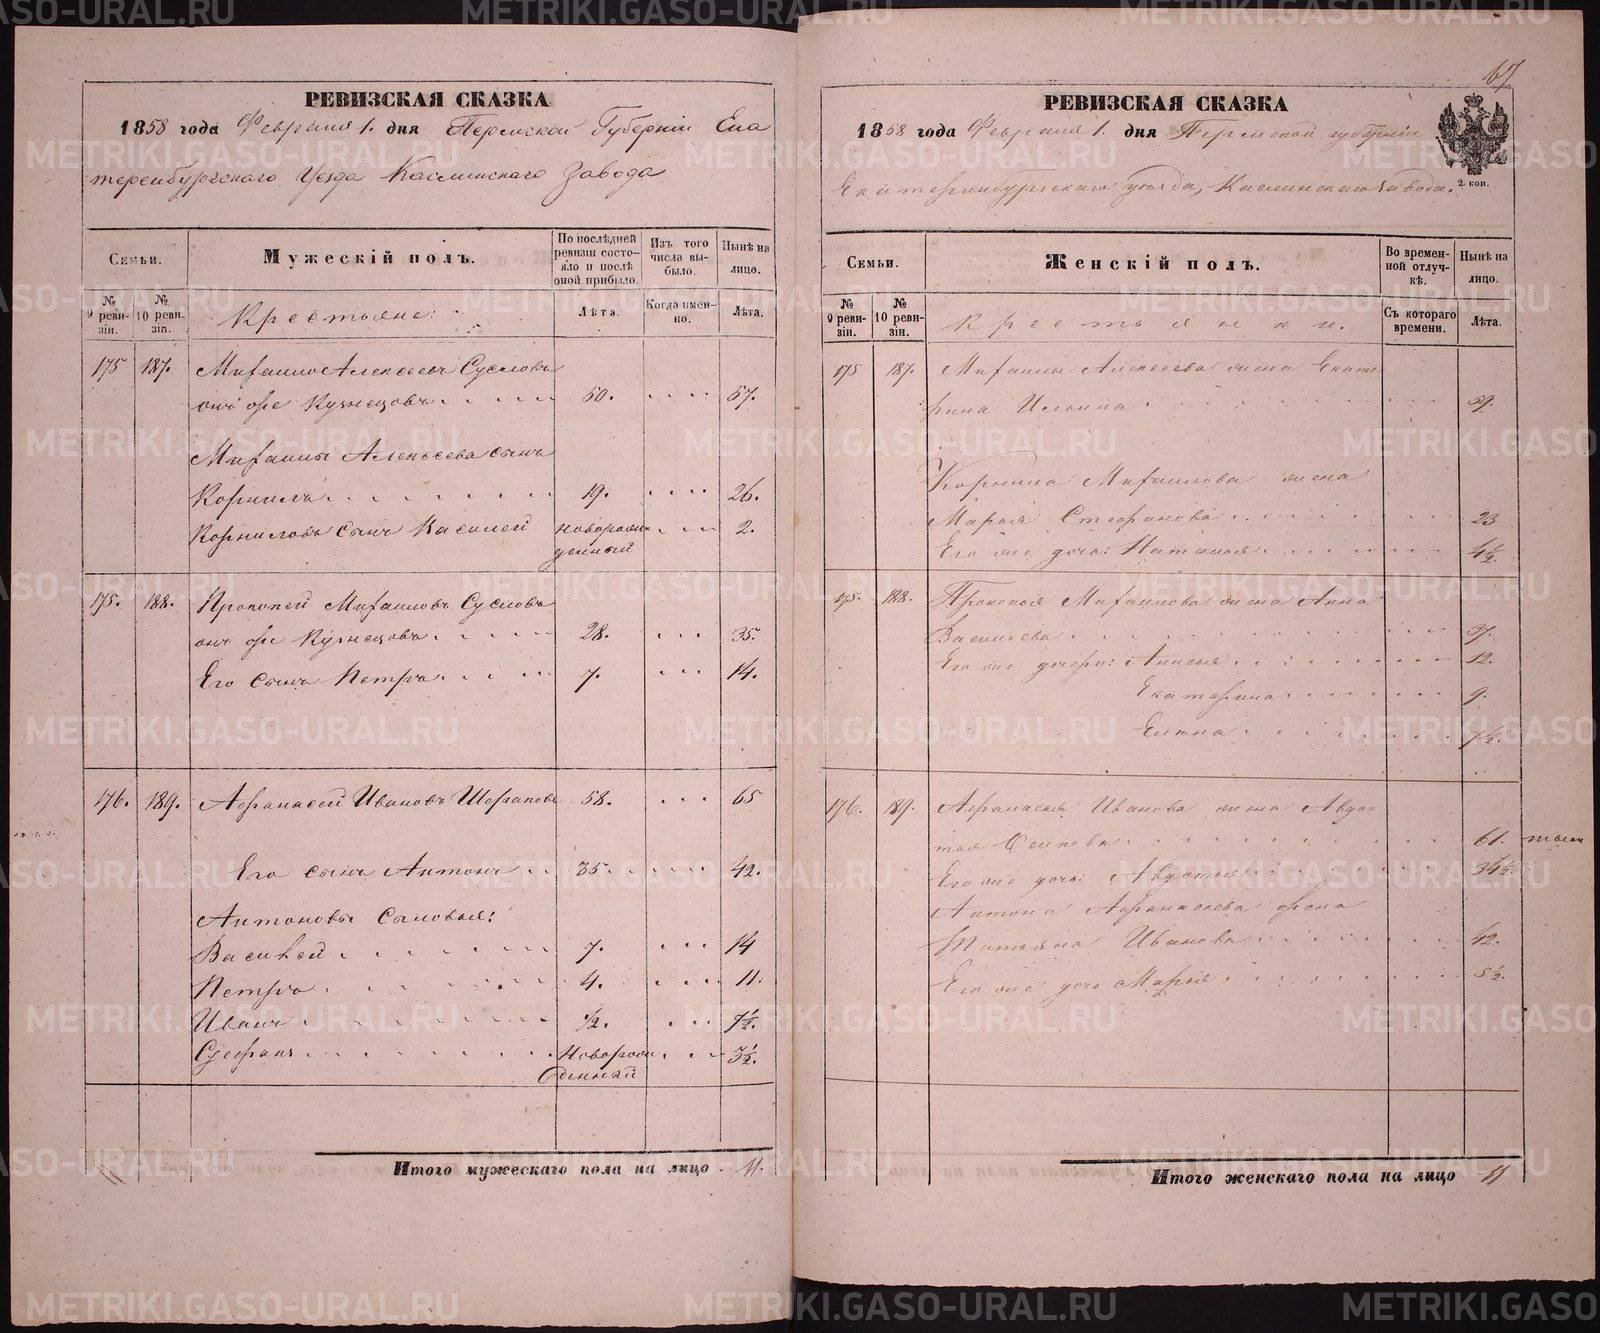 РЕВИЗСКАЯ СКАЗКА
1858 года Февраля 1. дня Пермской Губернiи Ека
теренбургскаго Уезда Каслинскаго Завода
Семьи.
№ 9 ревизiи.
№ 10 ревизiи.
Мужескiй полъ.
По послѣдней ревизiи состояло и послѣ оной прибыло.
Изъ того числа выбыло.
Нынѣ на лицо.
Крестьяне:
Лѣта.
Когда именно.
Лѣта.
175 187. Михаило Алексеевъ Сусловъ
онъ же Кузнецовъ 50. 57.
Михаилы Алексеева сынъ
Корнилъ 19. 26.
Корниловъ сынъ Василей новорож- 2.
денный
175. 188. Прокопей Михаиловъ Сусловъ
онъ же Кузнецовъ 28. 35.
Его сынъ Петръ 7. 14.
176. 189. Афанасей Ивановъ Шараповъ 58. 65
Его сынъ Антонъ 35. 42.
Антоновы Сыновья:
Василей 7. 14
Петръ 4. 11.
Иванъ 1/2. 7 1/2.
Стефанъ Новорож 3 1/2.
денный
Итого мужескаго пола на лицо 11.
67
РЕВИЗСКАЯ СКАЗКА
1858 года Февраля 1. дня Пермской губернiи
Екатеринбургскаго уезда, Каслинскаго завода.
2. коп.
Семьи.
№ 9 ревизiи.
№ 10 ревизiи.
Женскiй полъ.
Во временной отлучкѣ.
Нынѣ на лицо.
Крестьянки.
Съ котораго времени.
Лѣта.
175 187. Михаилы Алексеева жена Екате
рина Ильина 59.
Корнила Михаилова жена
Марья Стефанова 23
Его же дочь: Наталья 4 1/2
175. 188. Прокопья Михаилова жена Анна
Васильева 37.
Его же дочери: Анисья 12.
Екатерина 9.
Елена 1 1/2.
176. 189. Афанасья Иванова жена Авдо-
тья Осипова 61.
Его же дочь: Авдотья 34 1/2.
Антона Афанасьева жена
Татьяна Иванова 42.
Его же дочь Марья 5 1/2.
Итого женскаго пола на лицо 11
METRIKI.GASO-URAL.RU